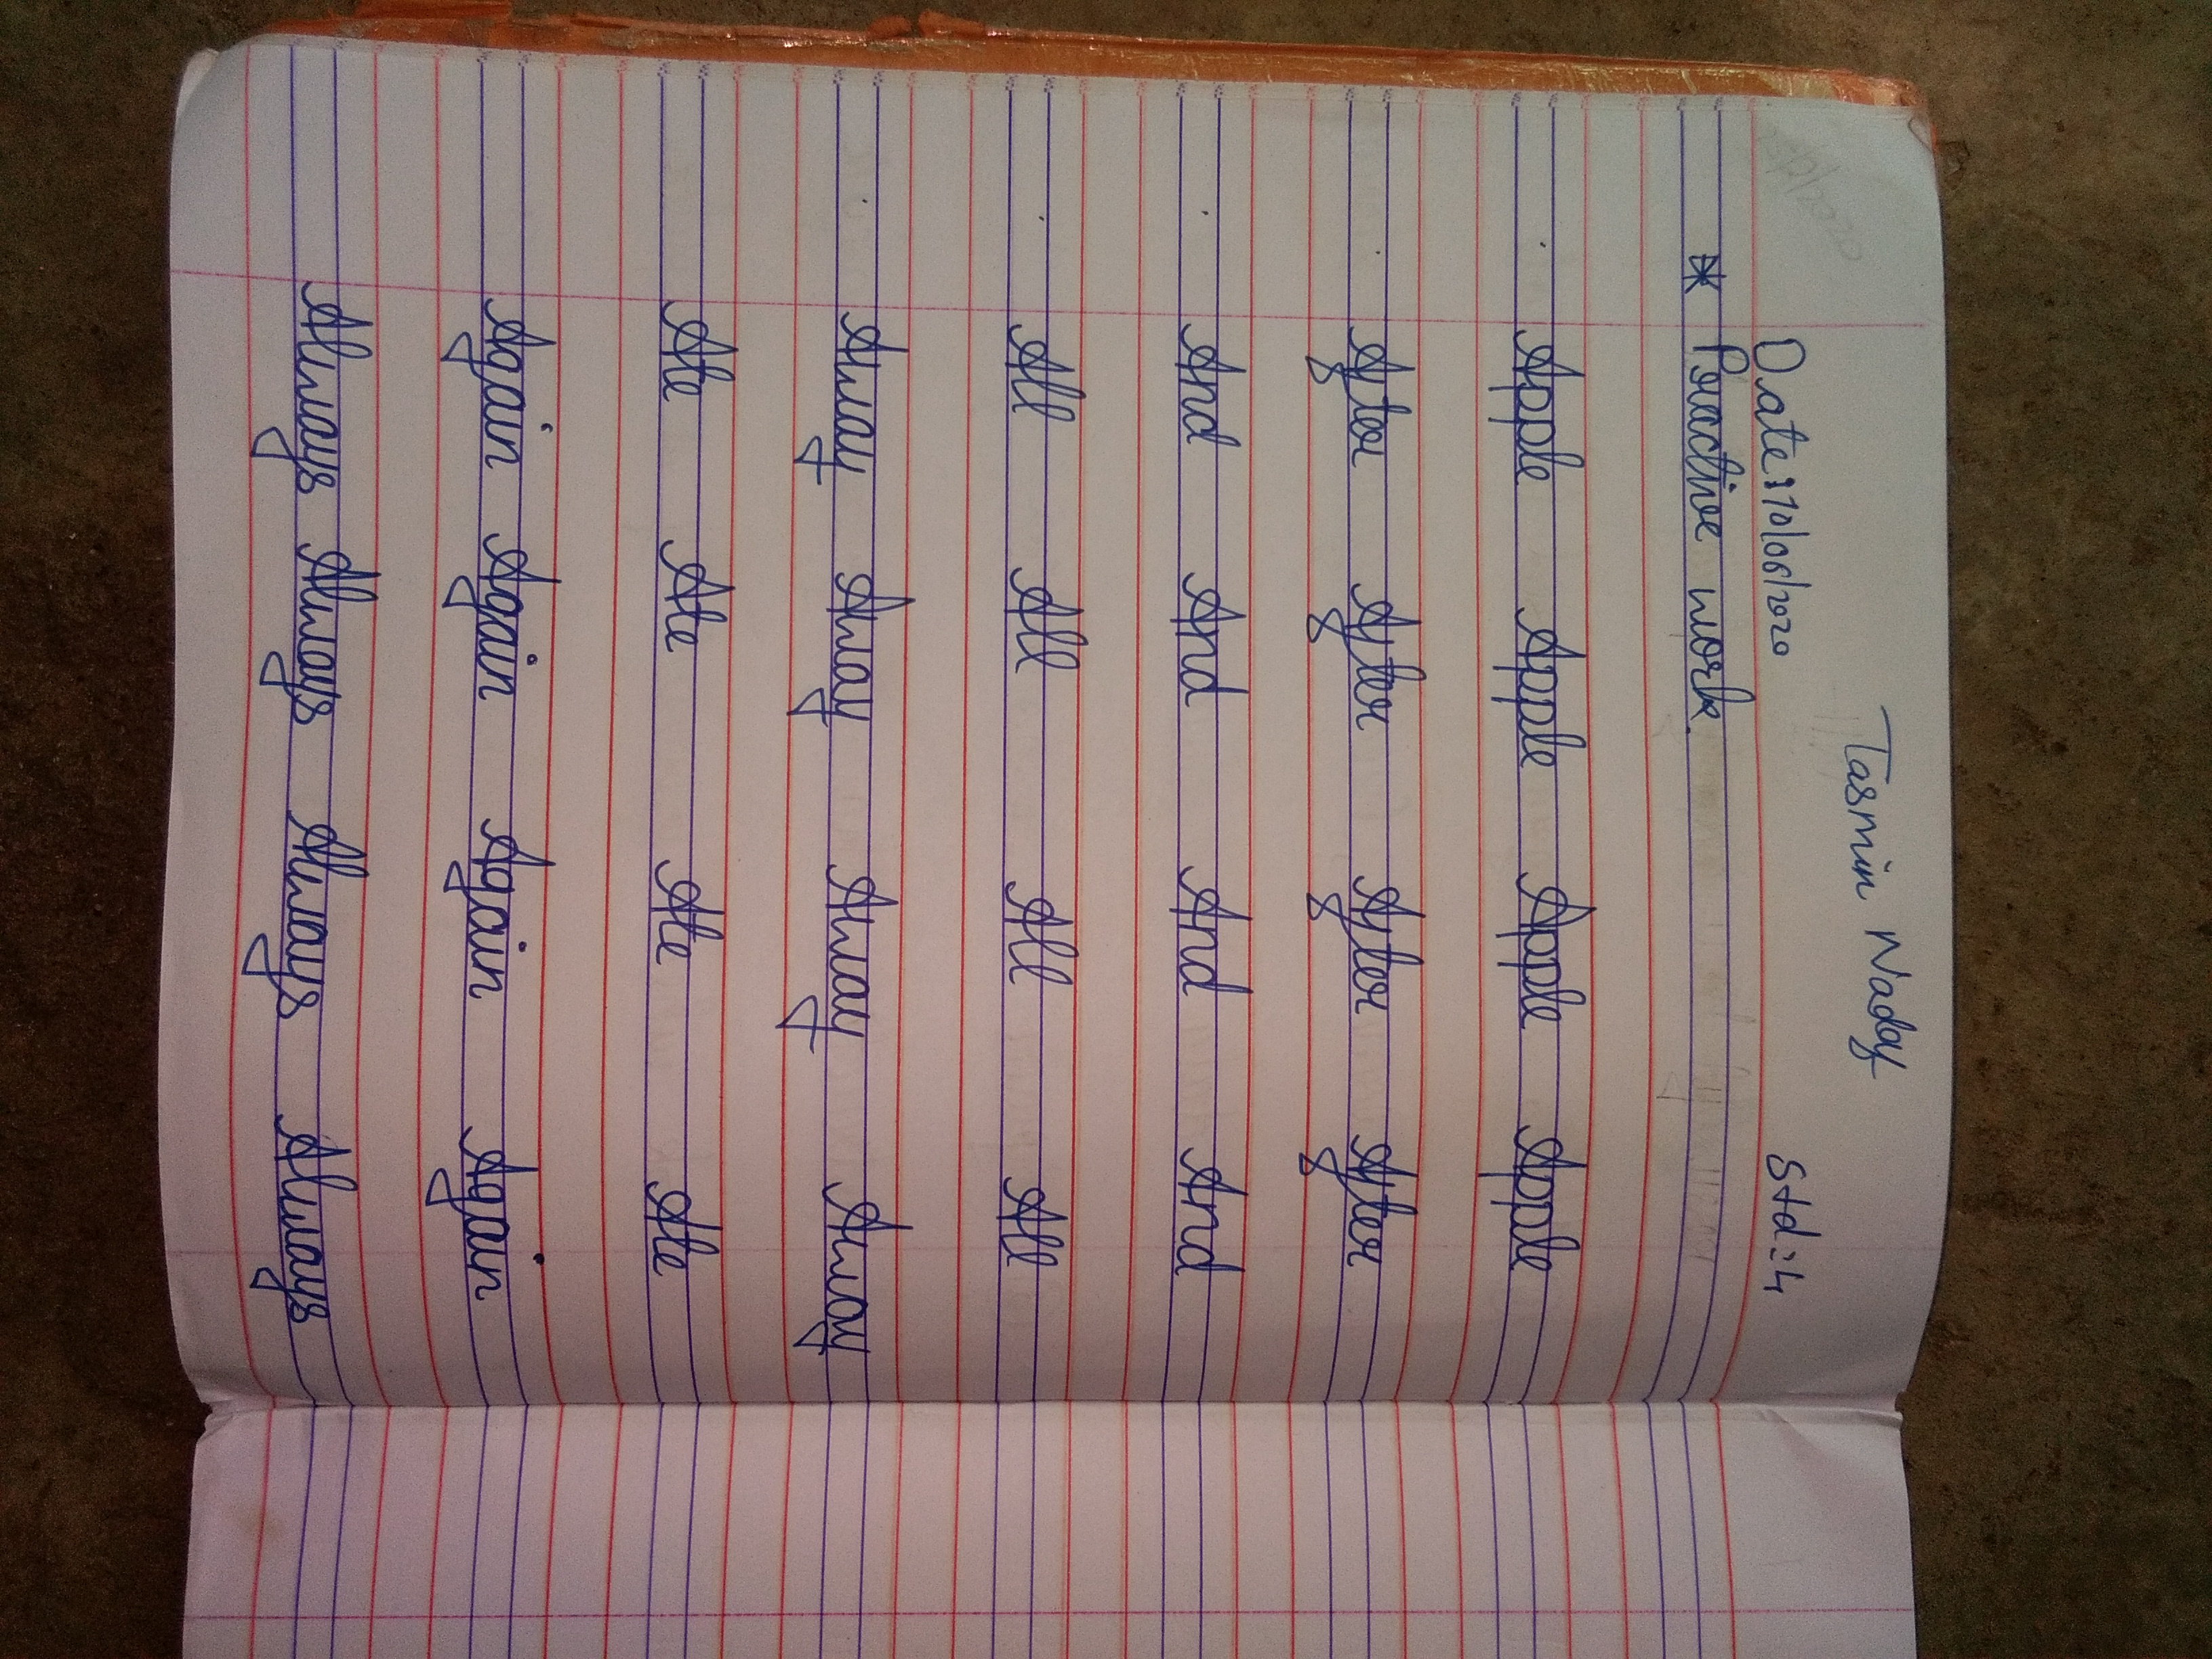 Tasmin Nadaf
Date:10/06/2020 Std:4
* Practive work.
Apple Apple Apple Apple
After After After After
And And And And
All All All All
Away Away Away Away
Ate Ate Ate Ate
Again Again Again Again
Always Always Always Always